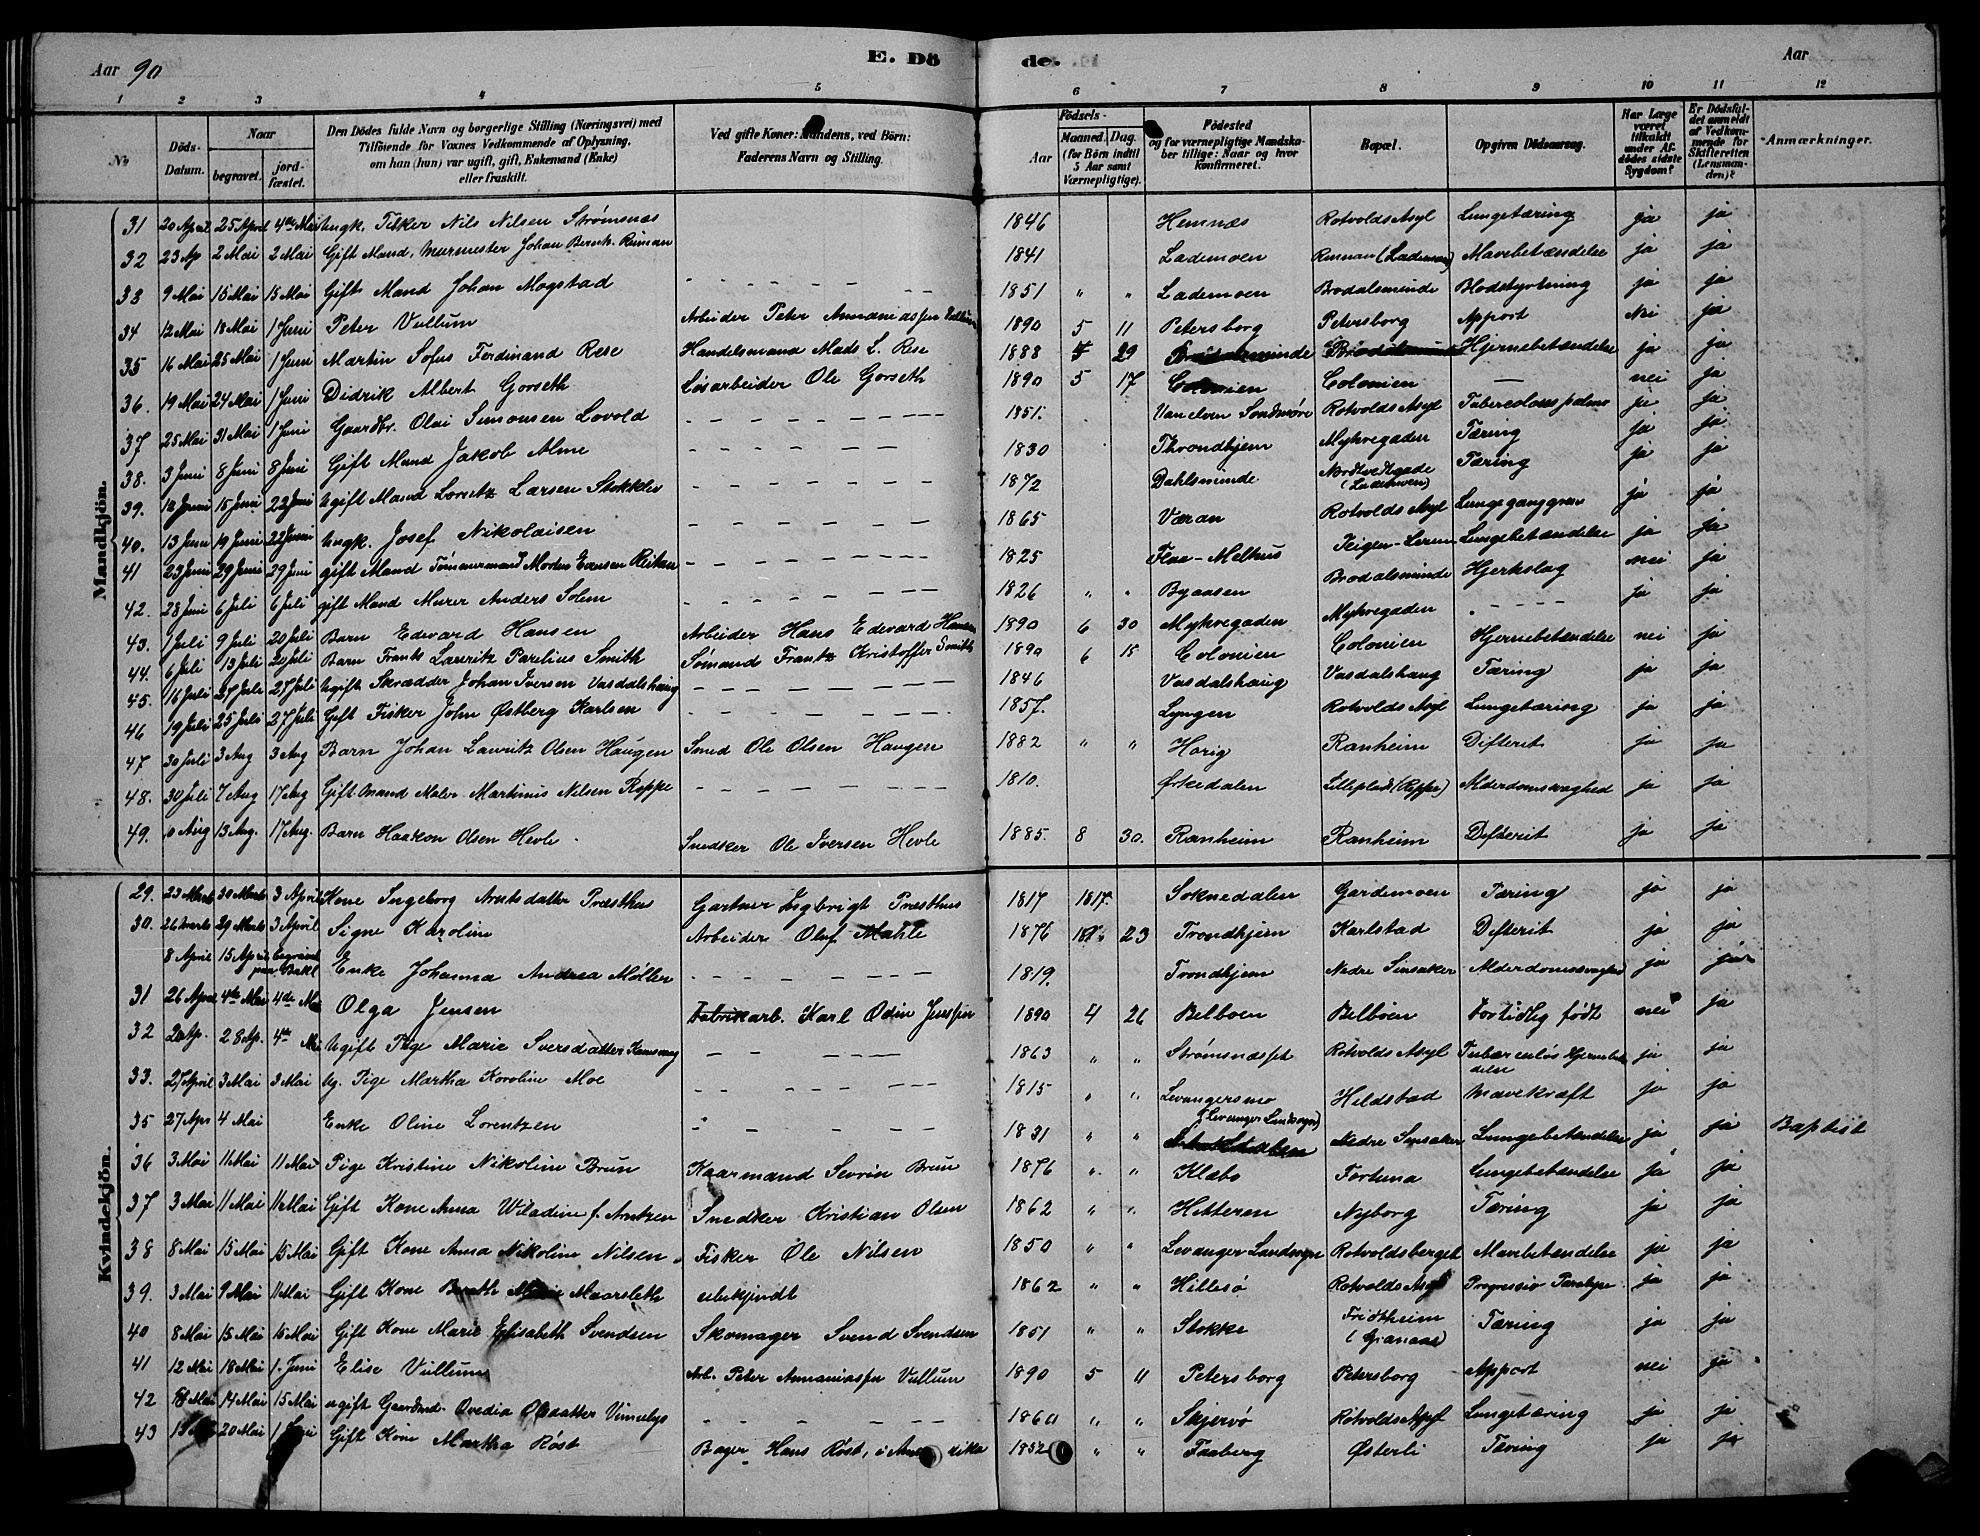 Aar 90
E. Dö
de.
Aar
1 2 3 4 5 6 7 8 9 10 11 12
No
Döds-Datum.
Naar
begravet.
jord-fæstet.
Den Dödes fulde Navn og borgerlige Stilling (Næringsvei) med
Tilföiende for Voxnes Vedkommende af Oplysning,
om han (hun) var ugift, gift, Enkemand (Enke)
eller fraskilt.
Ved gifte Koner: Mandens, ved Börn:
Faderens Navn og Stilling.
Födsels-
Aar
Maaned. Dag.
(for Börn indtil
5 Aar samt
Værnepligtige).
Födested
og for værnepligtige Mandska-
ber tillige: Naar og hvor
konfirmeret.
Bopæl.
Opgiven Dödsaarsag.
Har Læge
været
tilkaldt
under Af-
dödes sidste
Sygdom?
Er Dödsfal-
det anmeldt
af Vedkom-
mende for
Skifteretten
(Lensman-
den)?
Anmærkninger.
Mandkjön.
31 20 April 25 April 4de Mai Ungk. Fisker Nils Nilsen Strømsnes 1846 Hemnæs Rotvolds Asyl Lungetæring ja ja
32 23 Ap 2 Mai 2 Mai Gift Mand, Murmester Johan Bernh. 1841 Lademoen (Lademoen) Mavebetændelse ja ja
33 9 Mai 15 Mai 15 Mai Gift Mand Johan Mogstad - - - - - 1851 " " Lademoen Brodalsminde Blodstyrtning ja ja
34 12 Mai 18 Mai 1 Juni Peter Vullum Arbeider Peter Annaniassen Vullum 1890 5 11 Petersborg Petersborg Apport Nei ja
35 16 Mai 25 Mai 1 Juni Martin Sofus Ferdinand Rese Handelsmand Mads L. Rese 1888 29 Brodalsminde Hjernebetændelse ja ja
36. 19 Mai 24 Mai 1 Juni Didrik Albert Gorseth Løsarbeider Ole Gorseth 1890 5 17 Colonien Colonien — nei ja
37 25 Mai 31 Mai 1 Juni Gaardbr. Olai Simonsen Lovold - - - - - 1851. Vanelven Søndmøre Rotvolds Asyl ja ja
38. 3 Juni 8 Juni 8 Juni Gift Mand Jakob Alme - - - - - 1830 Throndhjem Myhregaden Tæring ja ja
39. 12 Juni 15 Juni 22 Juni Ugift Mand Lorentz Larsen - - - - - 1872 Dahlsminde Nordtvedtgade (Lademoen) Tæring ja ja
40. 13 Juni 19 Juni 22 Juni Ungk. Josef Nikolaisen - - - - - 1865 Væran Rotvolds Asyl Lungeganggræn ja ja
41 23 Juni 29 Juni 29 Juni gift Mand Tømmermand Morten Evensen - - - - - 1825 Flaa-Melhus Lungebetændelse ja ja
42. 28 Juni 6 Juli 6 Juli gift Mand Murer Anders Solem - - - - - 1826 " " Byaasen Brodalsminde Hjerteslag nei ja
43. 1 Juli 9 Juli 20 Juli Barn Edevard Hansen Arbeider Hans Edevard Hansen 1890 6 30 Myhregaden Myhregaden - - - - ja ja
44. 6 Juli 13 Juli 20 Juli Barn Frants Lauritz Parelius Smith Sømand Frantz Kristoffer Smith 1890 6 15 Colonien Colonien Hjernebetændelse nei ja
45. 16 Juli 27 Juli 27 Juli Ugift Skrædder Johan Iversen Vasdalshaug - - - - - 1846 Vasdalshaug Vasdalshaug Tæring ja ja
46 19 Juli 25 Juli 27 Juli Gift Fisker John Østberg Karlsen - - - - - 1857. Lyngen Rotvolds Asyl Lungetæring ja ja
47 30 Juli 3 Aug 3 Aug Barn Johan Lauritz Olsen Haugen Smed Ole Olsen Haugen 1882 " " Horig Ranheim Difterit ja ja
48. 30 Juli 7 Aug 17 Aug Gift Mand Maler Martinus Nilsen Roppe - - - - - 1810. Ørkedalen Lilleplads Alderdomssvaghed ja ja
49. 10 Aug 13 Aug. 17 Aug. Barn Haakon Olsen Hevle Snedker Ole Iversen Hevle 1885. 8 30. Ranheim Ranheim Difterit ja ja
Kvindekjön.
29. 23 Marts 30 Marts 3 April Kone Ingeborg Arntsdatter Præsthus Gartner Ingbrigt Præsthus 1817 1817. Soknedalen Gardemoen Tæring ja ja
30. 26 Marts 29 Marts 3 April Signe Karoline Arbeider Oluf Mahle 1876 23 Trondhjem Karlstad Difterit ja ja
8 April 15 April begravet paa Bakl. Enke Johanna Andrea Møller - - - - - 1819. Trondhjem Nedre Sinsaker Alderdomssvaghed ja ja
31 26 April 4de Mai 4de Mai Olga Jensen Fabrikarb. Karl Odin Jenssen 1890 4 26 Belboen Belboen For tidlig født nei ja
32 20 Ap. 28 Ap. 4de Mai Ugift Pige Marie Sversdatter - - - - - 1863 " " Strømsnæset Rotvolds Asyl Tubærculøs Hjernebetændelse ja ja
33. 27 April 3 Mai 3 Mai Ug. Pige Martha Karoline Moe - - - - - 1815 " " Levangersmo (Levanger Landsogn) Hildstad Mavekræft ja ja
35 27 Apr 4 Mai Enke Oline Lorentzen - - - - - 1831 " " Nedre Sinsaker Lungebetændelse ja ja Baptist
36 3 Mai 11 Mai 11 Mai Pige Kristine Nikoline Brun Kaarmand Sevrin Brun 1876 " " Klæbo Fortuna Lungebetændelse ja ja
37 3 Mai 11 Mai 11 Mai Gift Kone Anna Wiladine f. Arntzen Snedker Kristian Olsen 1862 " " Hitteren Nyborg Tæring ja ja
38 8 Mai 15 Mai 15 Mai Gift Kone Anna Nikoline Nilsen Fisker Ole Nilsen 1850 " " Levanger Landsogn Rotvoldsberget Mavebetændelse ja ja
39. 3 Mai 9 Mai 11 Mai Gift Kone Berath Marie Maarsleth ubekjendt 1862 " " Hillesø Rotvolds Asyl Progressiv Paralyse ja ja
40 8 Mai 15 Mai 15 Mai Gift Kone Marie Elisabeth Svendsen Skomager Svend Svendsen 1851 " " Stokke Fridtheim (Granaas) Tæring ja ja
41 12 Mai 18 Mai 1. Juni Elise Vullum Arb. Peter Annaniassen Vullum 1890 5 11 Petersborg Petersborg Apport nei ja
42 Mai 14 Mai 15 Mai ugift Gaardmd. Ovedia Olsdatter - - - - - 1860 " " Skjervø Rotvolds Asyl Lungetæring ja ja
43 20 Mai 1 Juni Gift Kone Martha Røst Bager Hans Røst, i Amerika 1852 " " Faaberg Østerli Tæring ja ja